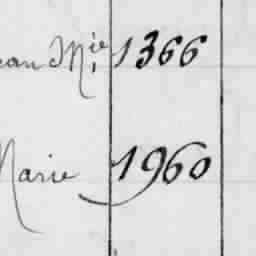 ean Mie 1366
Marie 1960